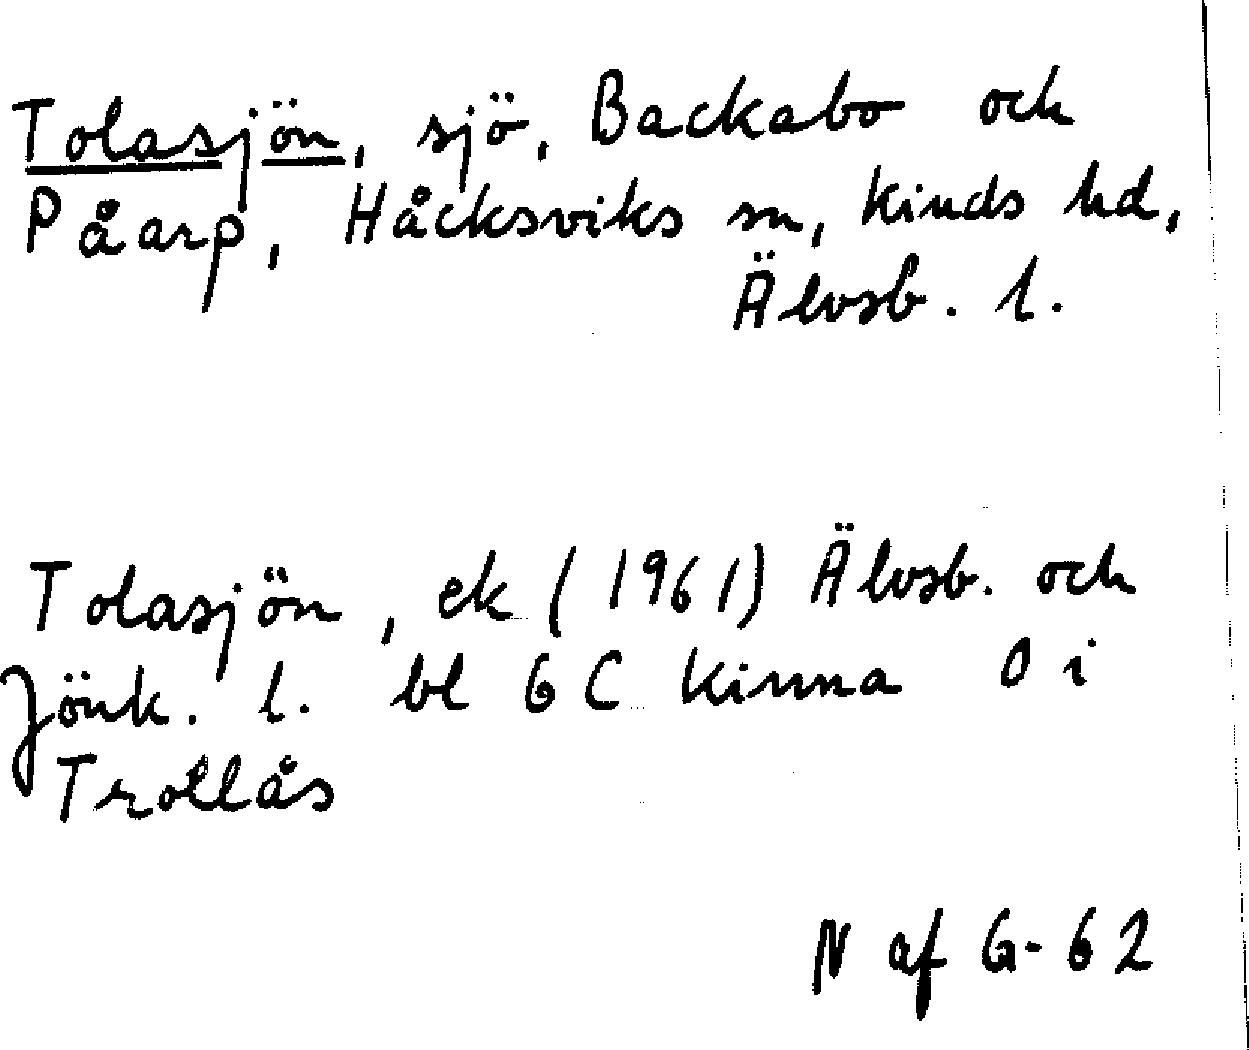 Tolasjön, sjö, Backabo och
Påarp, Håcksviks sn, Kinds hd,
Älvsb. l.
Tolasjön, ek (1961) Älvsb. och
Jönk. l. bl 6 C Kinna O i
Trollås
N af G-62